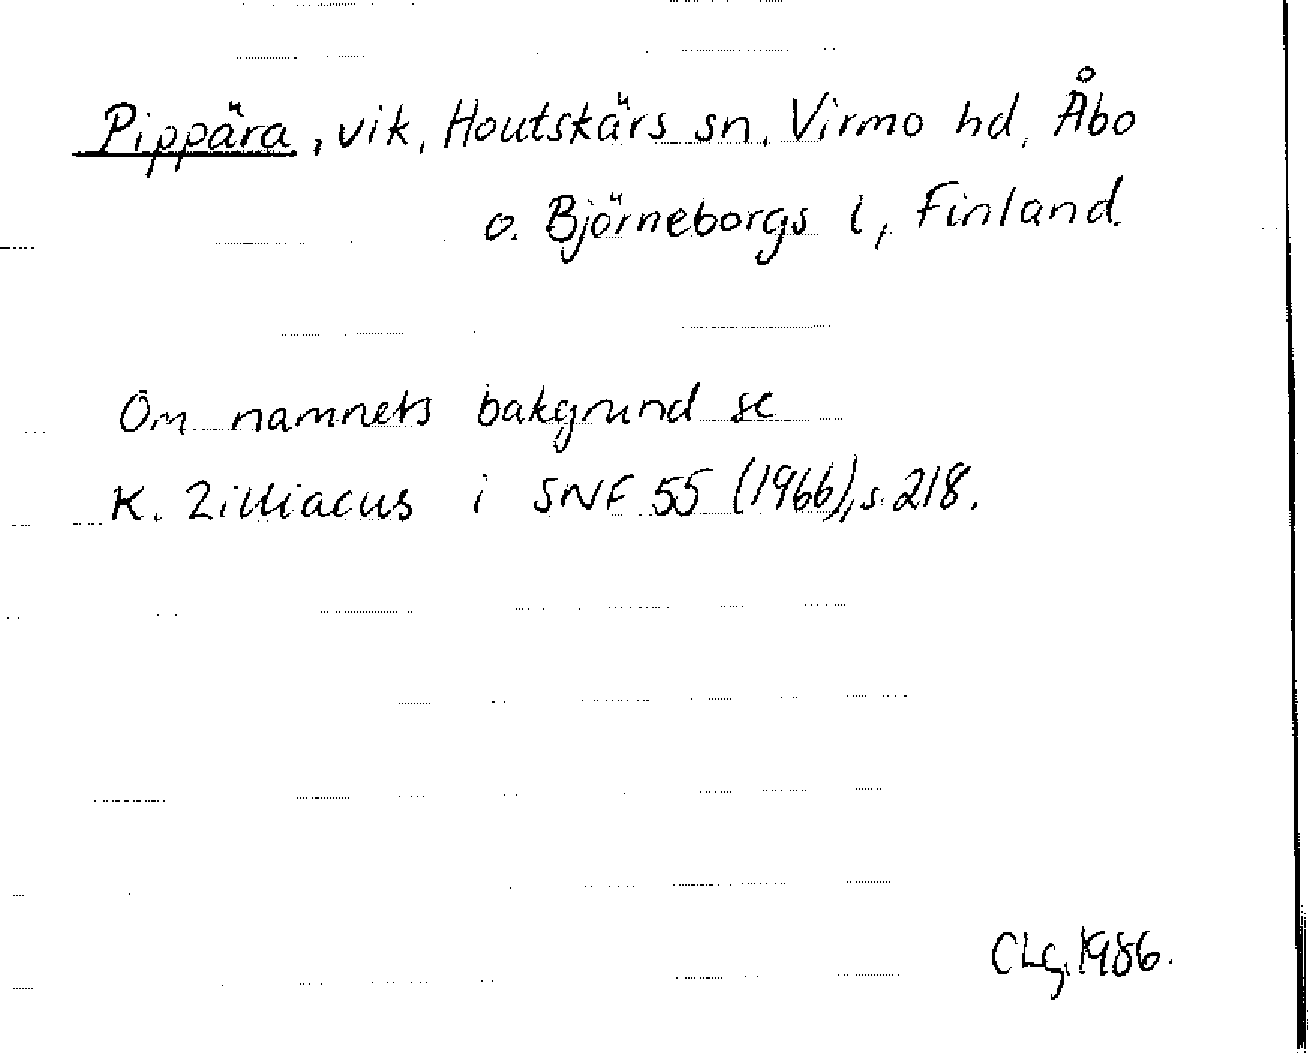 Pippära, vik, Houtskärs sn, Virmo hd, Åbo
o. Björneborgs l, Finland.
Om namnets bakgrund se
K. Zilliacus i SNF 55 (1966), s. 218.
CLg. 1986.